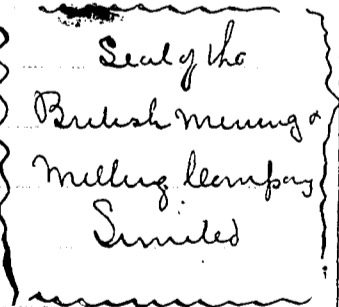 Seal of the
British Mining &
Milling Company
Limited